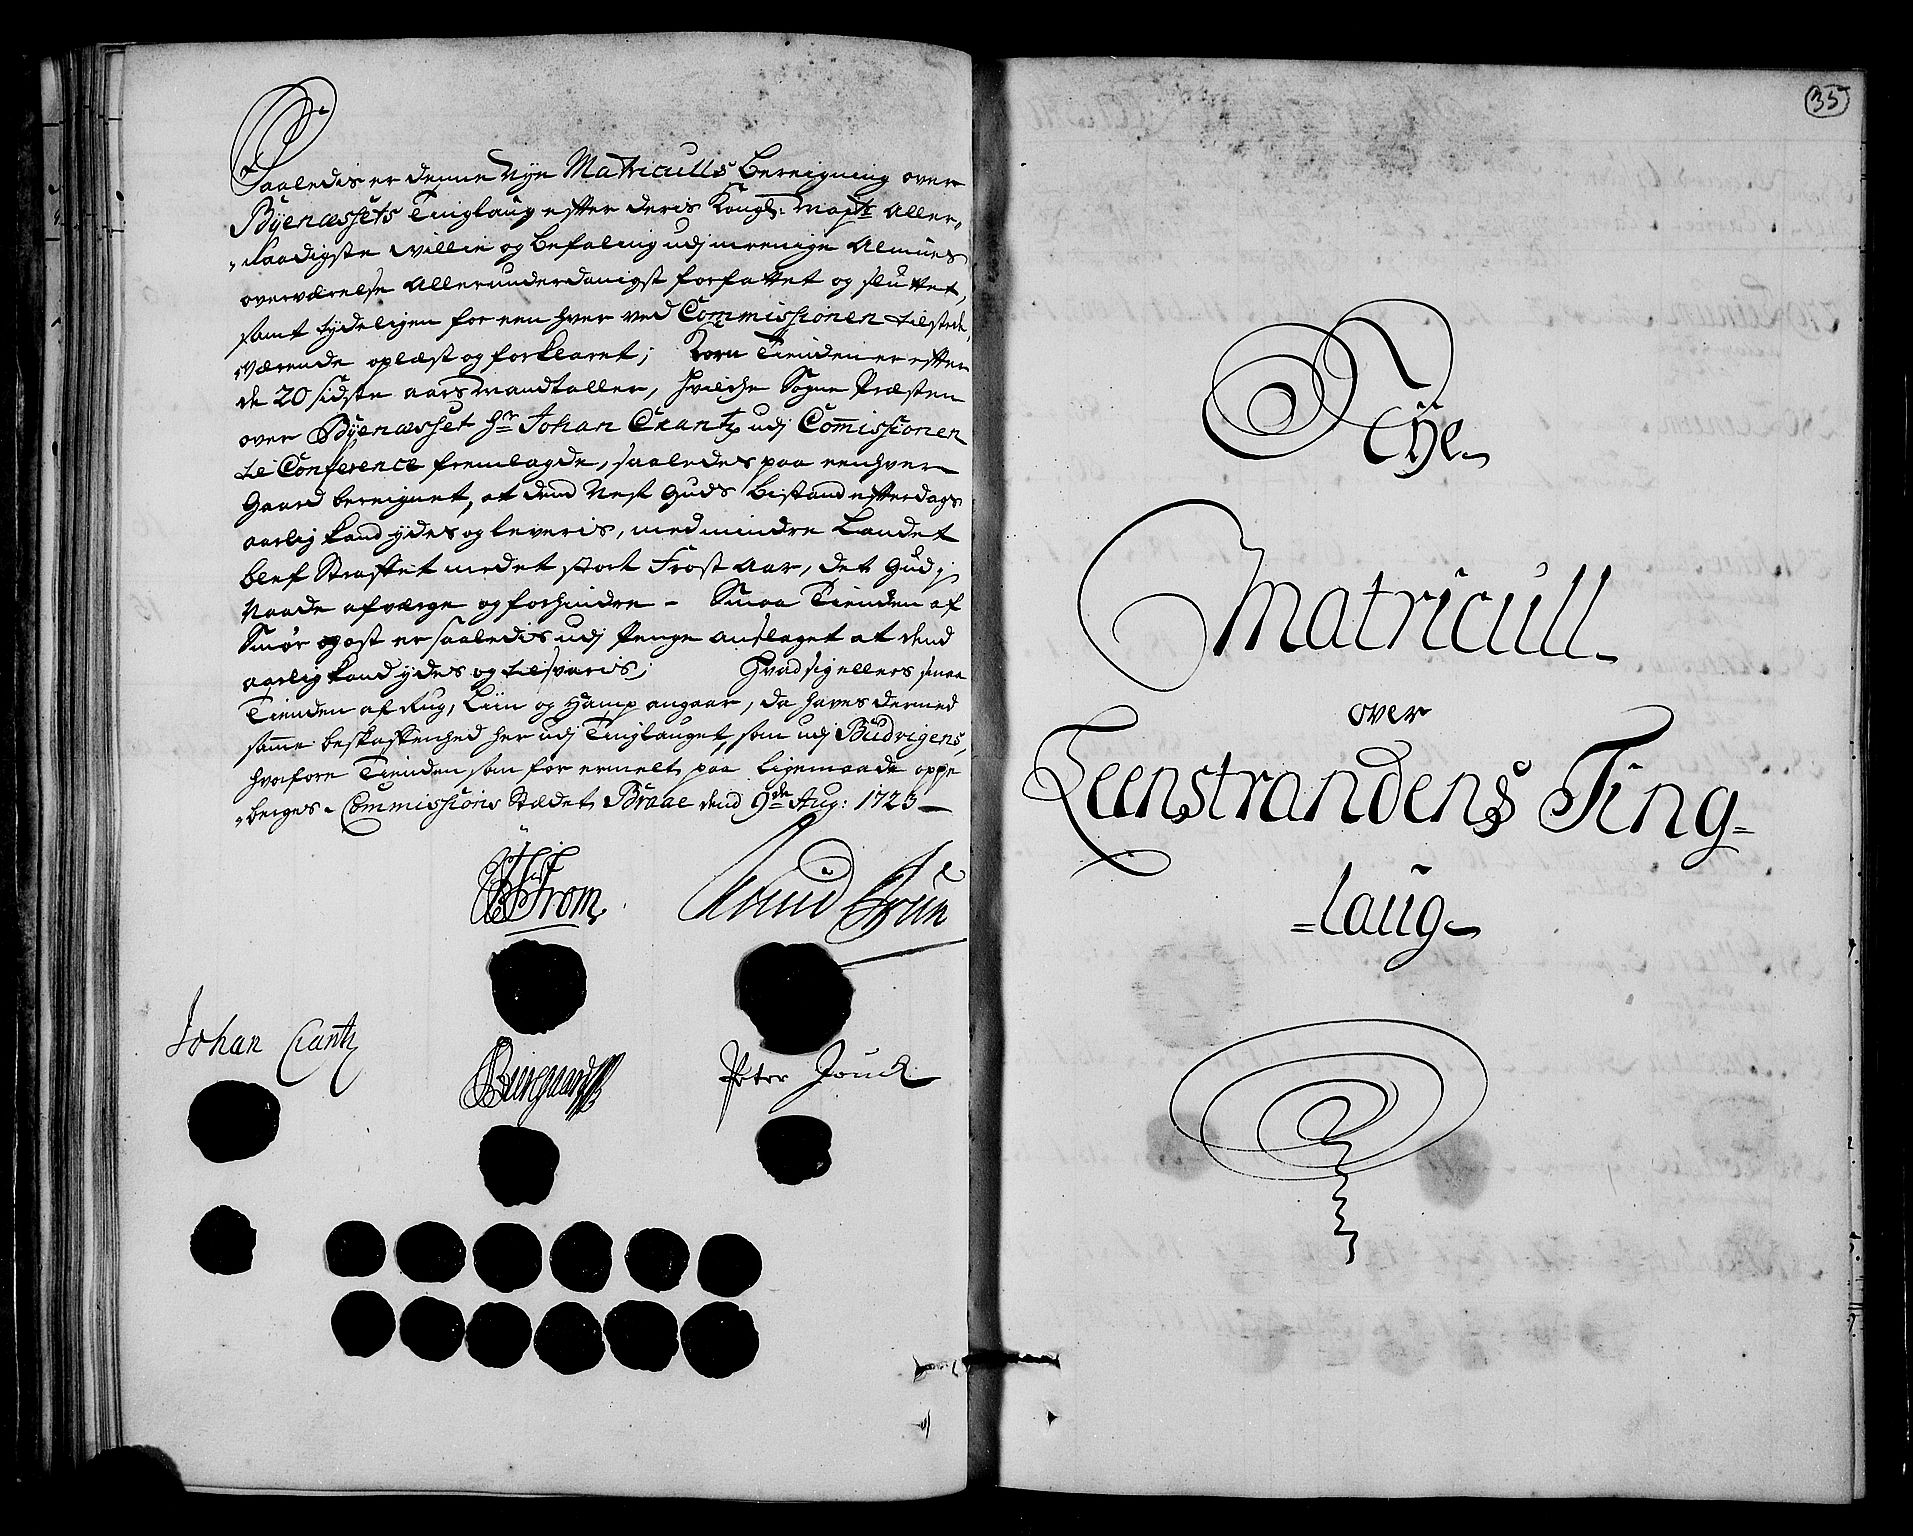 Saaledis er denne Nye Matriculls Bereigning over
Byenæssets Tinglaug efter deris Kongl: Mayts Aller-
-naadigste Villie og Befaling udj menige Almues
overværelse Allerunderdanigst forfattet og sluttet,
samt tydeligen for een hver ved Commissionen tilstede
værende oplæst og forklaret; Korn Tienden er efter
de 20 sidste aars Mandtaller, hvilche Sogne Præsten
over Byenæsset Hr Johan Crantz udj Commissionen
til Conference fremlagde, saaledes paa eenhver
Gaard bereignet, at dend Nest Guds Bistand efterdags
aarlig kand ydes og leveris, med mindre Landet
blef Straffet med et stort Frost Aar, det Gud j
Naade afverge og forhindre - Smaa Tienden af
Smør og ost er saaledis udj Penge anslaget at dend
aarlig kand ydes og tilsvaris; Hvad sig ellers smaa
Tienden af Rug, Liin og Hamp angaar, da haves dermed
samme beskaffenhed her udj Tinglauget, som udj Budvigens,
hvorfore Tienden som før ermelt paa ligemaade oppe
-berges. Commissions Stædet Braae dend 9de Aug: 1723
From
Knud Brun
Johan Crantz
Peter Jouch
35
Nye
Matricull
over
Leenstrandens Ting=
=laug